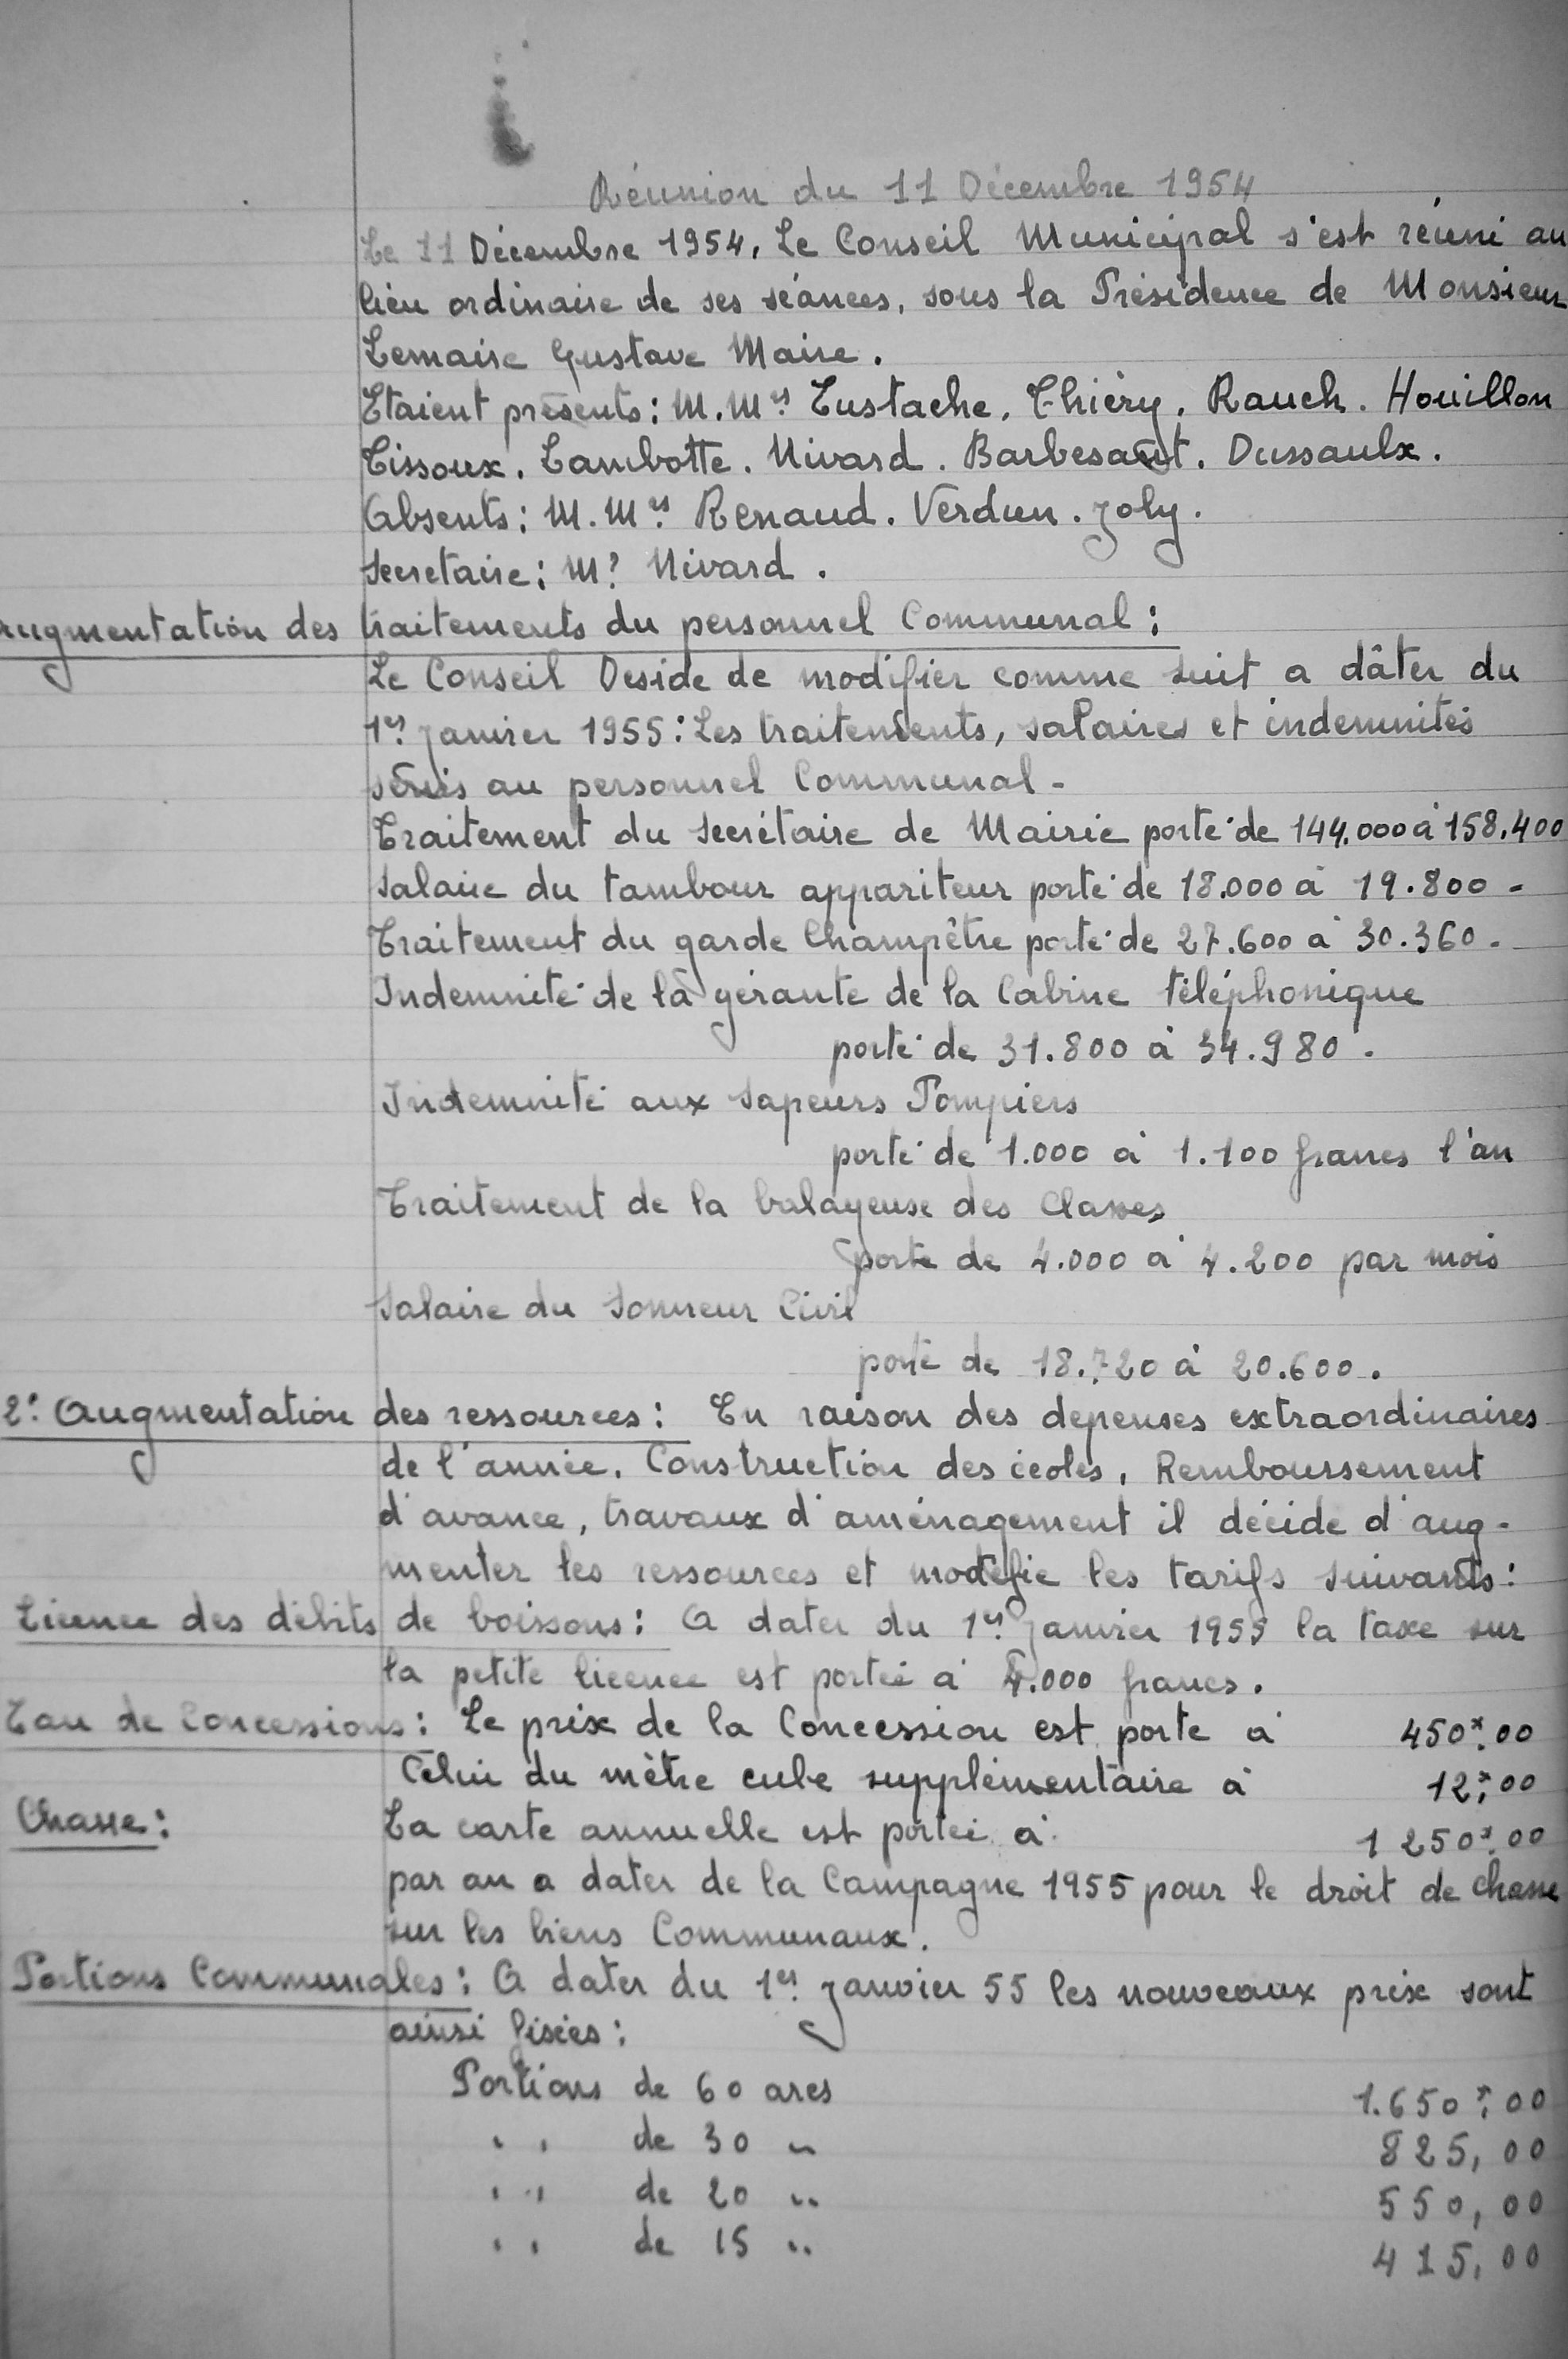 Réunion du 11 Décembre 1954
Le 11 Décembre 1954, Le Conseil Municipal s'est réuni au
lieu ordinaire de ses séances, sous la Présidence de Monsieur
Lemaire Gustave Maire.
Etaient présents: M.Mrs Eustache, Thiéry, Rauch. Houillon
Tissoux. Lambotte. Nivard. Barbesant. Dussaulx.
Absents: M.Mrs Renaud. Verdun. Joly.
Secretaire: Mr Nivard.
Augmentation des traitements du personnel Communal:
Le Conseil Deside de modifier comme suit a dâter du
1er Janvier 1955: Les traitements, salaires et indemnités
servis au personnel Communal -
Traitement du secrétaire de Mairie porté de 144.000 à 158.400
Salaire du tambour appariteur porté de 18.000 à 19.800 -
Traitement du garde Champêtre porté de 27.600 à 30.360 -
Indemnité de la gérante de la Cabine téléphonique
porté de 31.800 à 34.980.
Indemnité aux Sapeurs Pompiers
porté de 1.000 à 1.100 francs l'an
Traitement de la balayeuse des Classes
porte de 4.000 à 4.200 par mois
Salaire du Sonneur Civil
porté de 18.720 à 20.600.
2° Augmentation des ressources: En raison des depenses extraordinaires
de l'année. Construction des écoles, Remboursement
d'avance, travaux d'aménagement il décide d'aug-
menter les ressources et modifie les tarifs suivants:
Licence des débits de boissons: A dater du 1er Janvier 1955 la taxe sur
la petite licence est portée à 4.000 francs.
Eau de Concessions: Le prix de la Concession est porte à 450F,00
Celui du mètre cube supplémentaire à 12F,00
Chasse: La carte annuelle est portée à 1 250F,00
par an a dater de la Campagne 1955 pour le droit de chasse
sur les biens Communaux.
Portions Communales: A dater du 1er Janvier 55 les nouveaux prix sont
ainsi fixées:
Portions de 60 ares 1.650F,00
" de 30 " 825,00
" de 20 " 550,00
" de 15 " 415,00